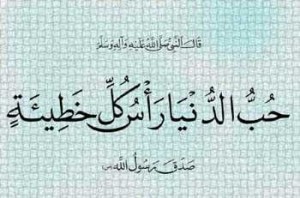 قَالَ النَّبِيُّ صَلَّى اللَّهُ عَلَيْهِ وَآلِهِ وَسَلَّمَ
حُبُّ الدُّنْيَا رَأْسُ كُلِّ خَطِيئَةٍ
صَدَقَ رَسُولُ اللَّهِ